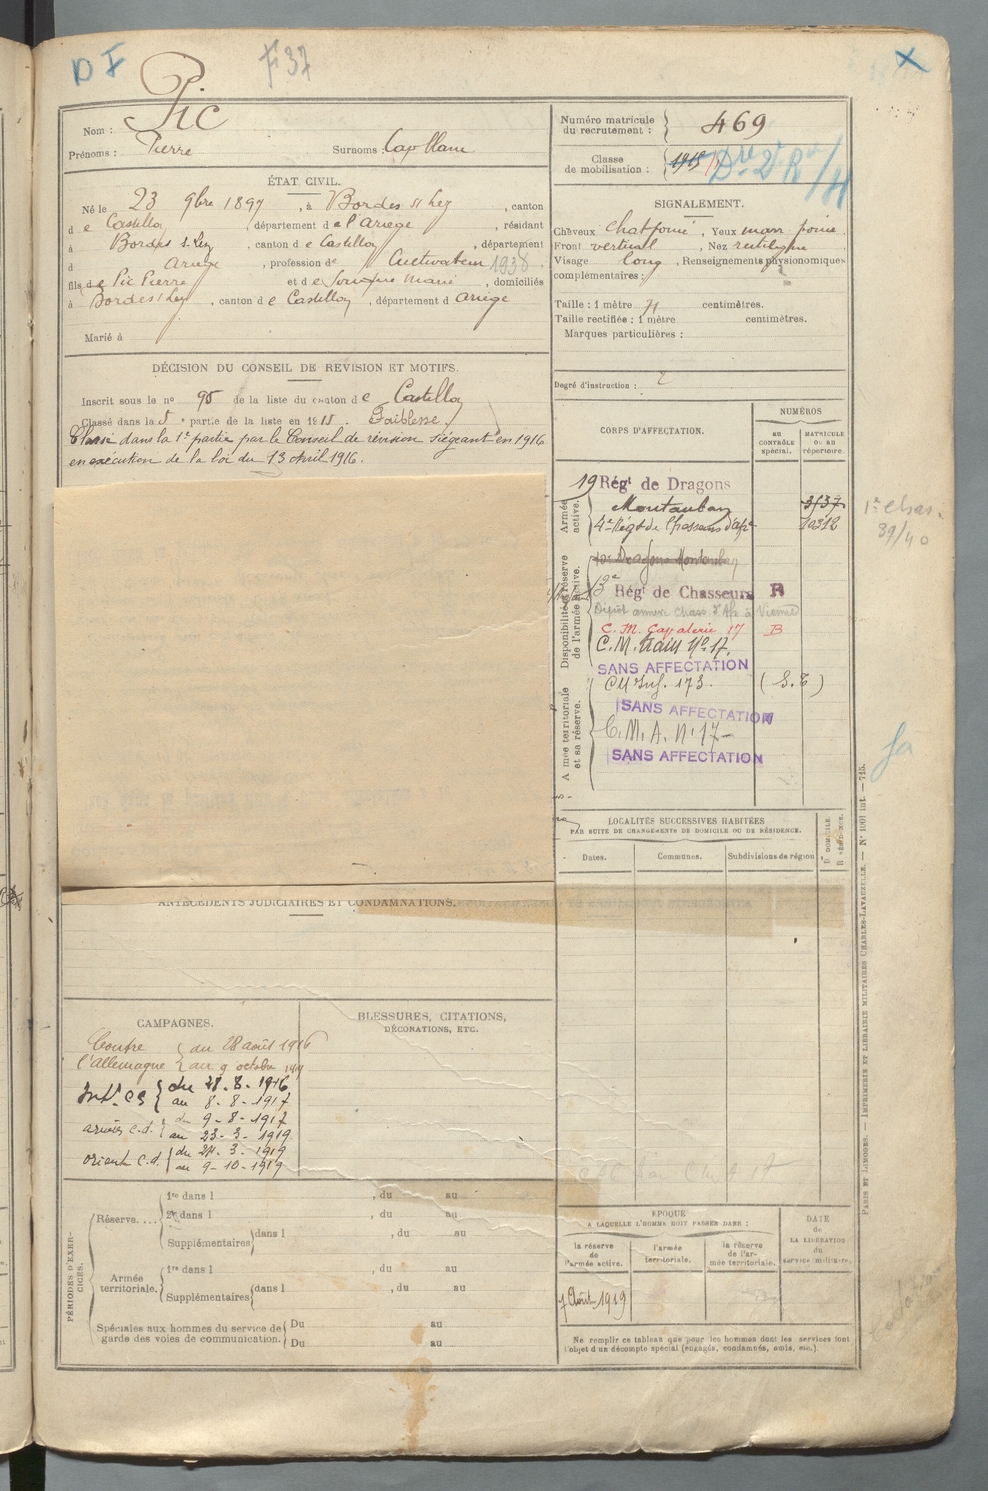 D F
F 37
X
Nom : Pic
Prénoms : Pierre Surnoms : Cap blanc
Numéro matricule du recrutement : 469
Classe de mobilisation : 1918
ÉTAT CIVIL.
Né le 23 9bre 1897, à Bordes s/ Lez, canton
de Castillon, département de l'Ariège, résidant
à Bordes s. Lez, canton de Castillon, département
d Ariège, profession de Cultivateur 1938
fils de Pic Pierre et de Marie, domiciliés
à Bordes s/ Lez, canton de Castillon, département d Ariège
Marié à
SIGNALEMENT.
Cheveux chat foncé, Yeux marr foncé
Front vertical, Nez rectiligne
Visage long, Renseignements physionomiques
complémentaires :
Taille : 1 mètre 71 centimètres.
Taille rectifiée : 1 mètre centimètres.
Marques particulières :
Degré d'instruction : 2
DÉCISION DU CONSEIL DE REVISION ET MOTIFS.
Inscrit sous le no 95 de la liste du canton de Castillon
Classé dans la 5e partie de la liste en 1915. Faiblesse
Classé dans la 1e partie par le Conseil de révision siégeant en 1916
en exécution de la loi du 13 Avril 1916.
CORPS D'AFFECTATION.
NUMÉROS
au CONTRÔLE spécial.
MATRICULE ou au répertoire.
Armée active.
19 Régt de Dragons
Montauban 3537
4e Régt de Chasseurs d'Af 10312
1e Chas.
39/40
Disponibilité et réserve de l'armée active.
Dragons Montauban
3e Régt de Chasseurs R
Dépôt annexe chass. d'Af. à Vienne
C. M. Cavalerie 17 B
C. M. train No 17.
SANS AFFECTATION
Armée territoriale et sa réserve.
CM Inf. 173. (S. T)
SANS AFFECTATION
C. M. A. N° 17
SANS AFFECTATION
LOCALITÉS SUCCESSIVES HABITÉES
PAR SUITE DE CHANGEMENTS DE DOMICILE OU DE RÉSIDENCE.
Dates. Communes. Subdivisions de région
D DOMICILE.
R RÉSIDENCE.
ANTÉCÉDENTS JUDICIAIRES ET CONDAMNATIONS.
CAMPAGNES.
Contre l'allemagne { du 28 août 1916
au 9 octobre 1919
Intr CS { du 28-8-1916
au 8-8-1917
armées c.d. { du 9-8-1917
au 23-3-1919
orient c.d. { du 24-3-1919
au 9-10-1919
BLESSURES, CITATIONS,
DÉCORATIONS, ETC.
PÉRIODES D'EXERCICES.
Réserve....
1re dans l , du au
2e dans l , du au
Supplémentaires dans l , du au
Armée territoriale.
1re dans l , du au
Supplémentaires dans l , du au
Spéciales aux hommes du service de garde des voies de communication.
Du au
Du au
EPOQUE
A LAQUELLE L'HOMME DOIT PASSER DANS :
la réserve de l'armée active.
l'armée territoriale.
la réserve de l'armée territoriale.
DATE
de
LA LIBÉRATION
du
service militaire.
1 Août 1919
Ne remplir ce tableau que pour les hommes dont les services font
l'objet d'un décompte spécial (engagés, condamnés, omis, etc.).
PARIS ET LIMOGES. — IMPRIMERIE ET LIBRAIRIE MILITAIRES CHARLES-LAVAUZELLE. — N° 1001 int. — 715.